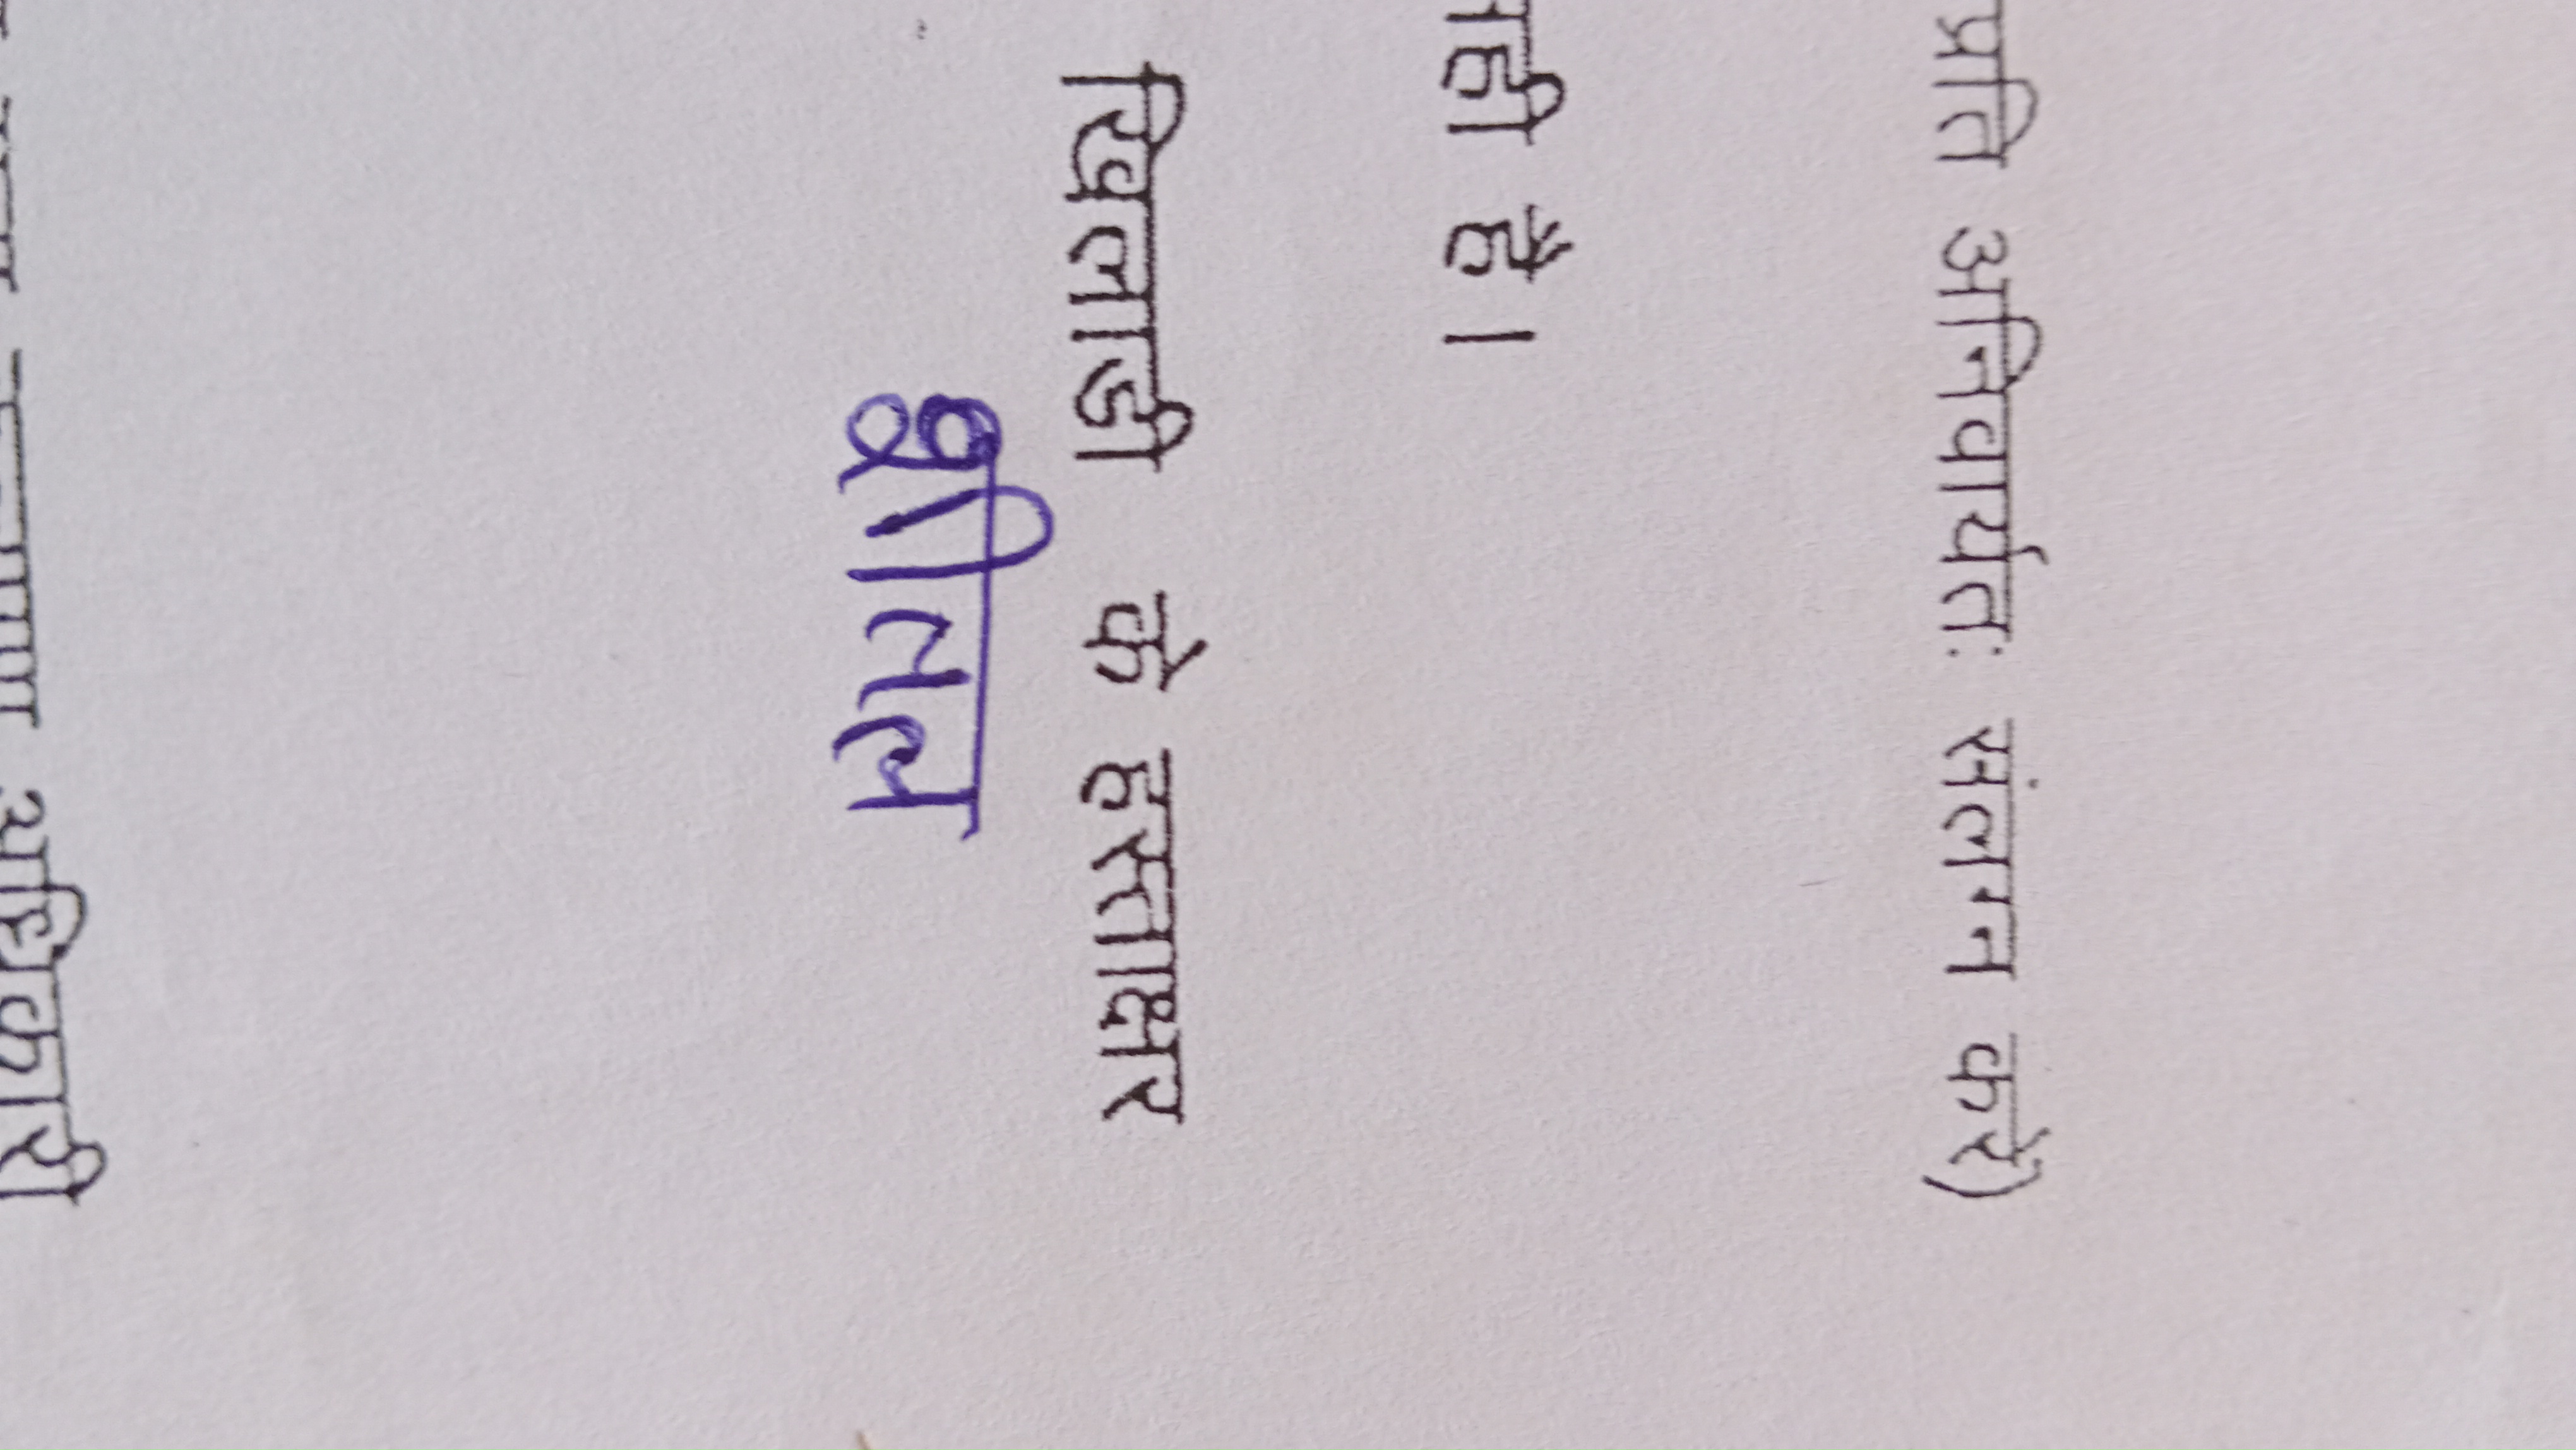 प्रति अनिवार्यतः संलग्न करें)
नही है।
खिलाडी के हस्ताक्षर
शीतल
अधिकारी